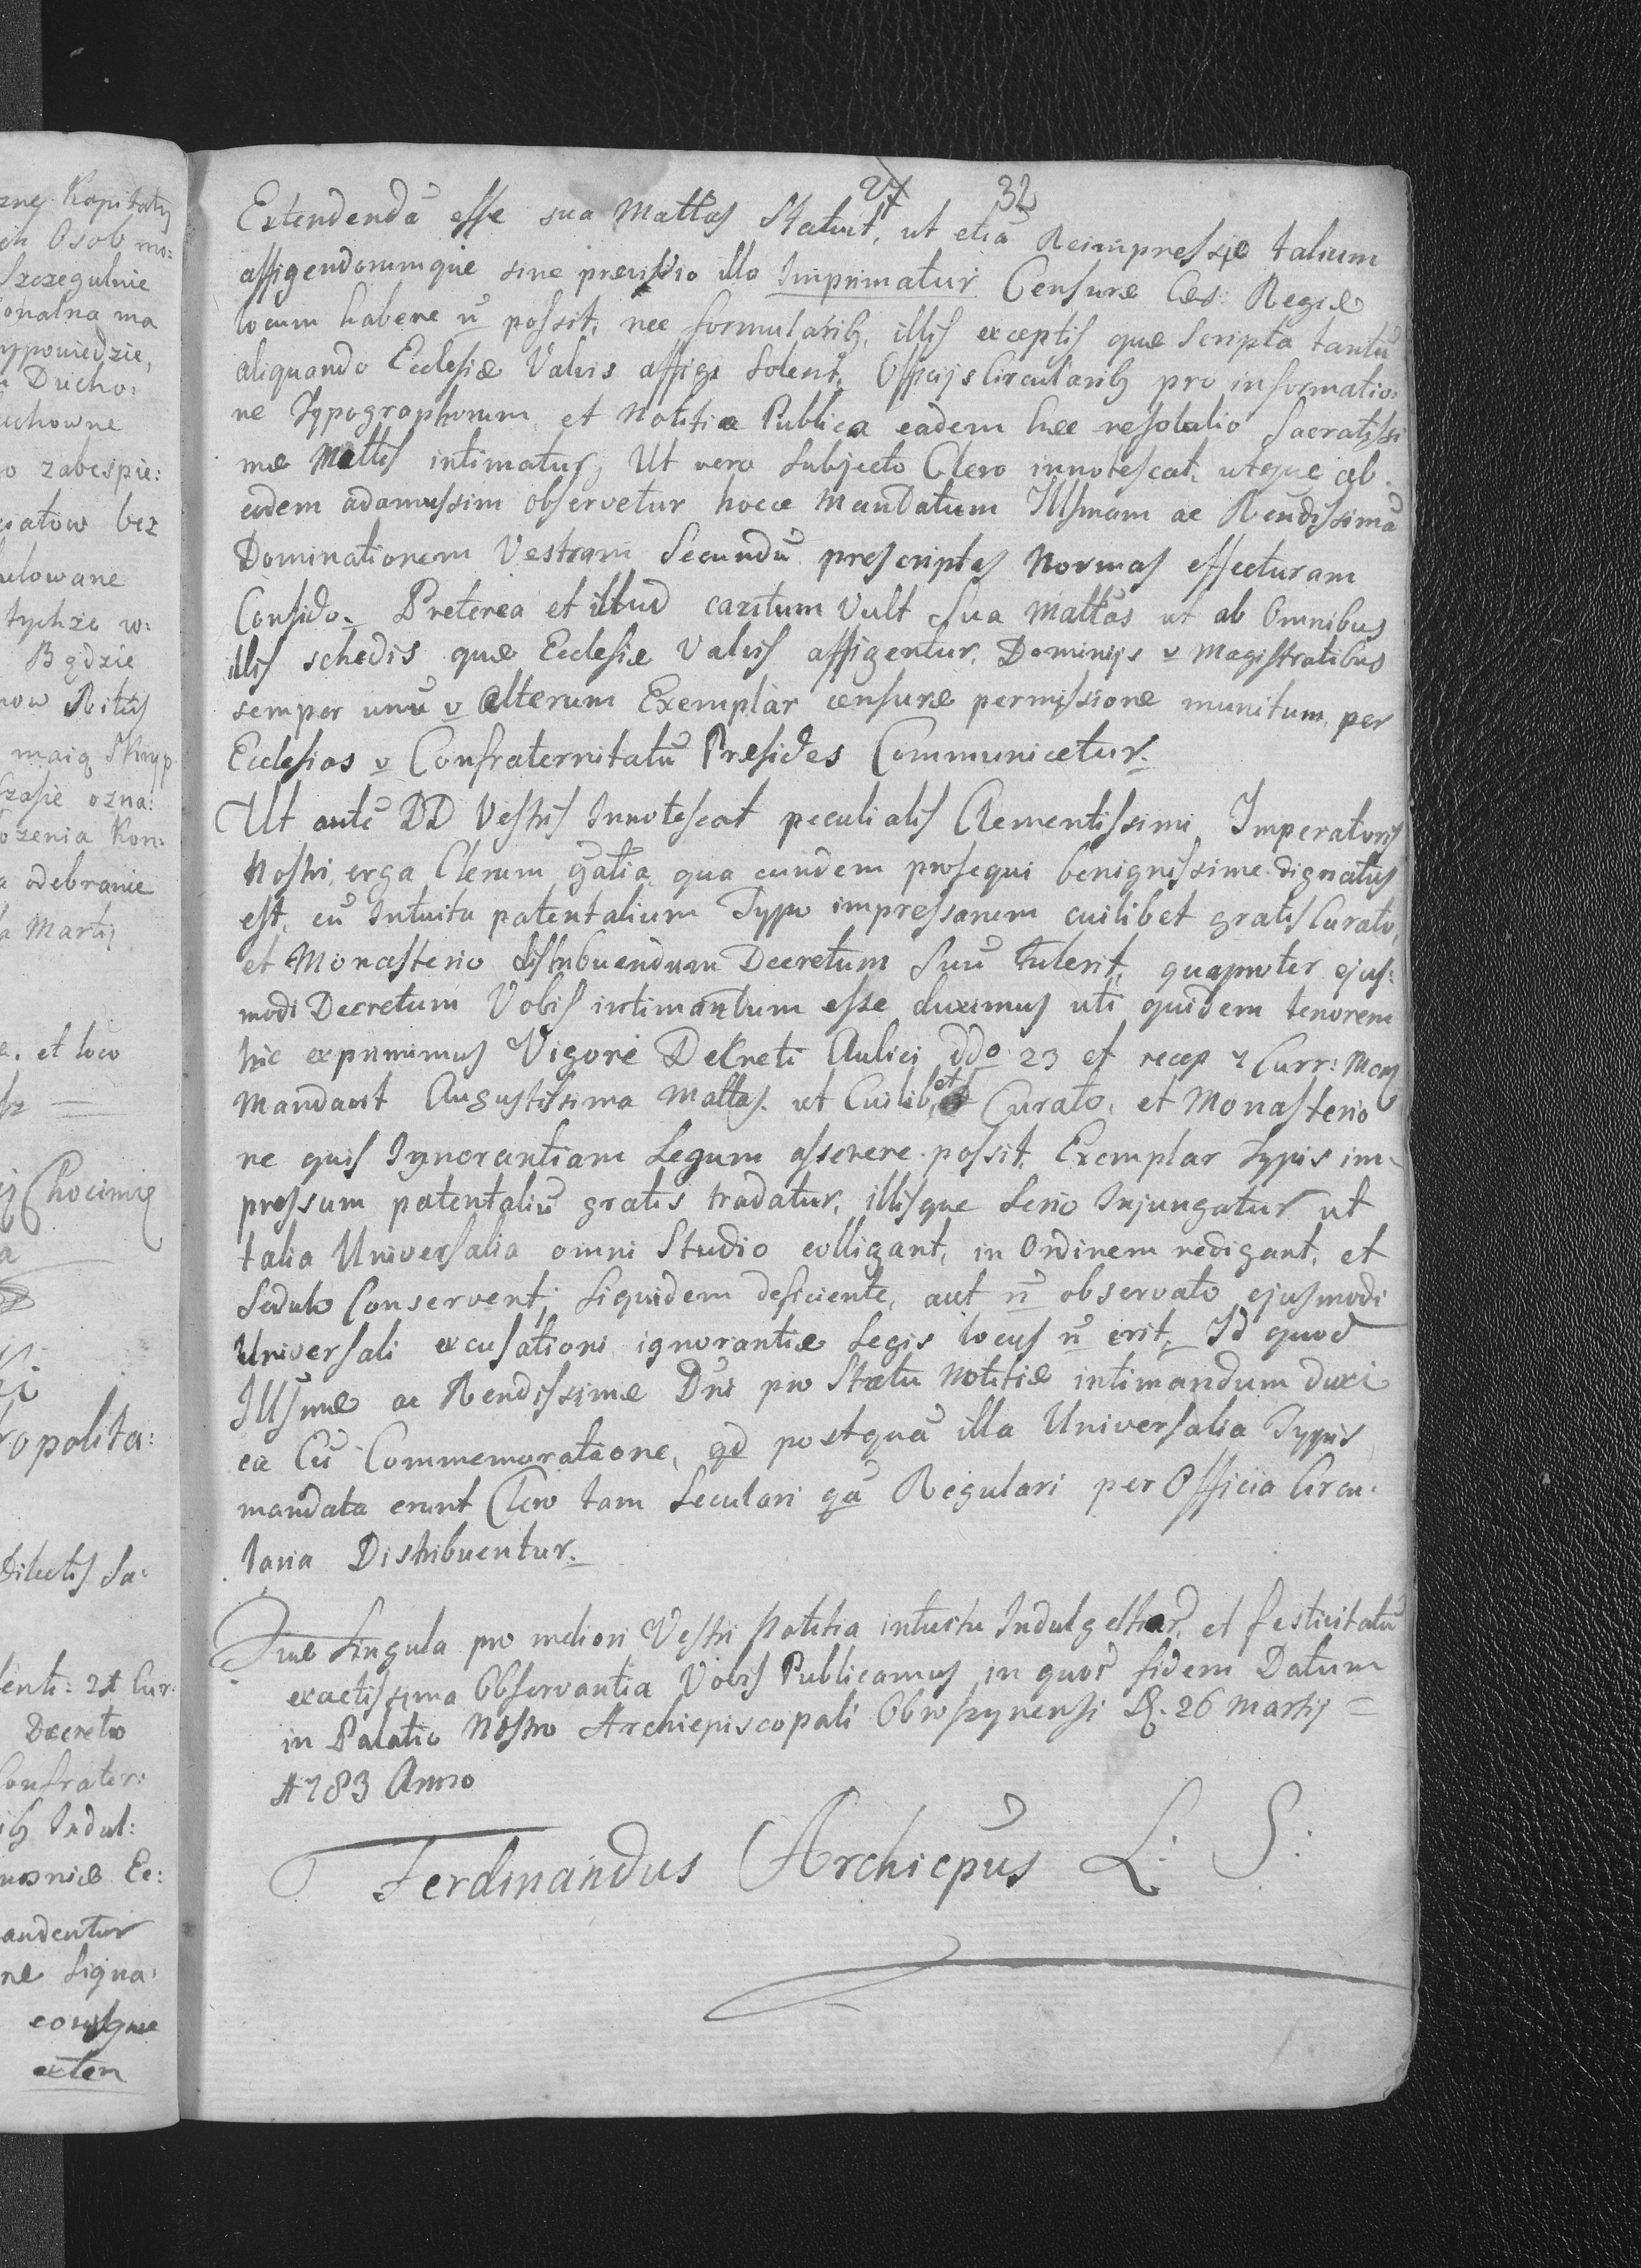 27 32
Extendendā esse sua Mattas Statuit, ut etiā Reimpressio talium
affigendorumque sine previdio illo Imprimatur Censuræ Ces: Regiæ
locum habere n̄ possit, nec formularib, illis exceptis quæ Scripta tantū
aliquando Ecclesiæ Valvis affigi solent, Officijs Circularib pro informatio:
ne Typographorum, et Notitia Publica eadem hæc resolutio Sacratissi
mæ Mattis intimatur, Ut vero Subjecto Clero innotescat, utque ab
eodem adamussim observetur hocce Mandatum Illsmam ac Rendissimā
Dominationem Vestram Secundū prescriptas Normas effecturam
Confido. Preterea et illud cautum Vult Sua Mattas ut ab Omnibus
illis schedis quæ Ecclesiæ Valvis affigentur, Dominijs v Magistratibus
semper unū v alterum Exemplar censuræ permissione munitum, per
Ecclesias v Confraternitatū Presides Communicetur.
Ut autē DD Vestris Innotescat peculialis Clementissimi Imperatoris
Nostri, erga Clerum gatia, qua eundem prosequi benignissime dignatus
est, cū Intuitu patentalium Typo impressarum cuilibet gratis Curato,
et Monasterio distribuendum Decretum Suū tulerit, quapropter ejus:
modi Decretum Vobis intimandum esse duximus uti quidem tenorem
hic exprimimus Vigore Decreti Aulici ddo 23 et recep 7 Curr: Mens
Mandavit Augustissima Mattas. ut Cuilibet Curato, et Monasterio
ne quis Ignorantiam Legum asserere possit, Exemplar Typis im-
pressum patentaliū gratis tradatur, illisque Serio Injungatur ut
talia Universalia omni Studio colligant, in Ordinem redigant, et
Sedulo Conservent; Siquidem deficiente, aut n̄ observato ejusmodi
Universali excusationi ignorantiæ Legis locus n̄ erit. Id quod
Illsmæ ac Rendissimæ Dni pro Statu Notitiæ intimandum duxi
ea Cū Commemoratione, qd postquā illa Universalia Typis
mandata erunt Clero tam Seculari qā Regulari per Officia Circu:
laria Distribuentur.
Quæ Singula pro meliori Vestri Notitia intuitu Indulgeltiar, et festivitatū
exactissima Observantia Vobis Publicamus in quor fidem Datum
in Palatio Nostro Archiepiscopali Obroszynensi D. 26 Martij =
1783 Anno
Ferdinandus Archiepus L: S: